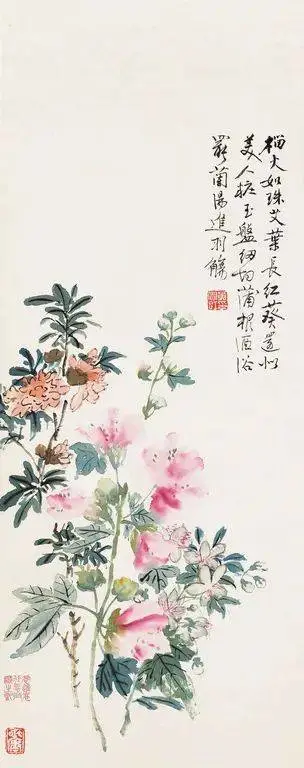 榴火如珠艾葉長紅葵還似
美人粧玉盤細切蒲根酒浴
罷蘭湯進羽觴